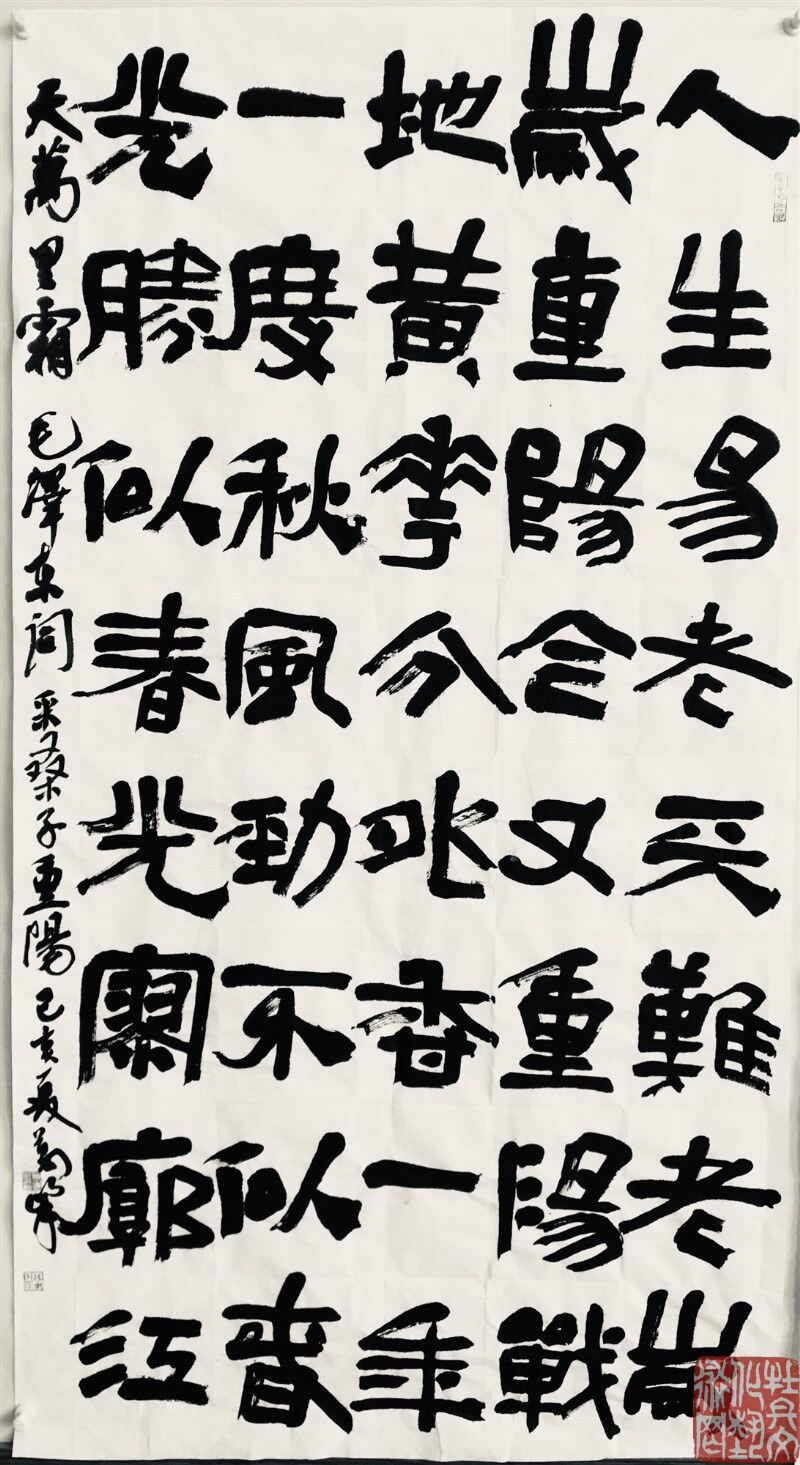 人生易老天難老歲
歲重陽今又重陽戰
地黃花分外香一年
一度秋風勁不似春
光勝似春光寥廓江
天萬里霜 毛澤東詞 采桑子重陽 己亥夏
牡丹文化藝術网